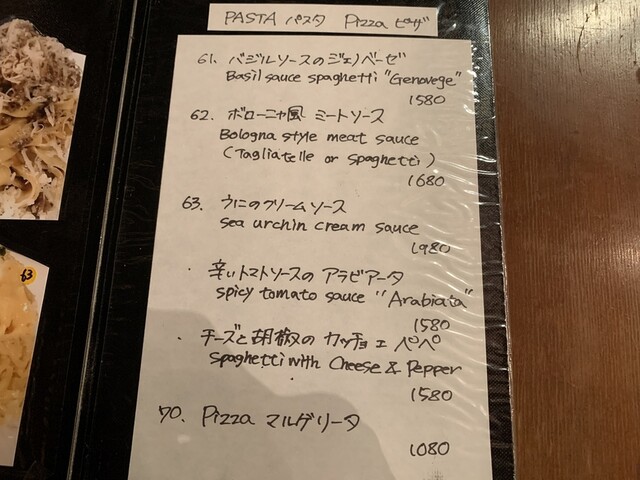 PASTA パスタ Pizza ピザ
61. バジルソースのジェノベーゼ
Basil sauce spaghetti "Genovege"
1580
62. ボローニャ風 ミートソース
Bologna style meat sauce
(Tagliatelle or spaghetti)
1680
63. うにのクリームソース
sea urchin cream sauce
1980
・ 辛いトマトソースの アラビアータ
spicy tomato sauce "Arabiata"
1580
・ チーズと胡椒の カッチョ エ ペペ
spaghetti with Cheese & Pepper
1580
70. Pizza マルゲリータ
1080
63